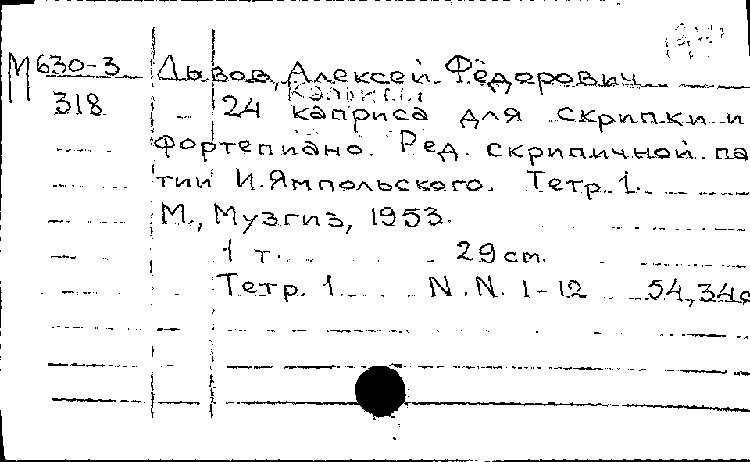 М 630-3 Львов, Алексей Фёдорович
318 24 каприса для скрипки и
фортепиано. Ред. скрипичной па
тии И. Ямпольского. Тетр. 1.
М., Музгиз, 1953.
1 т. 29 cm.
Тетр. 1 N.N. 1-12 54, 34с